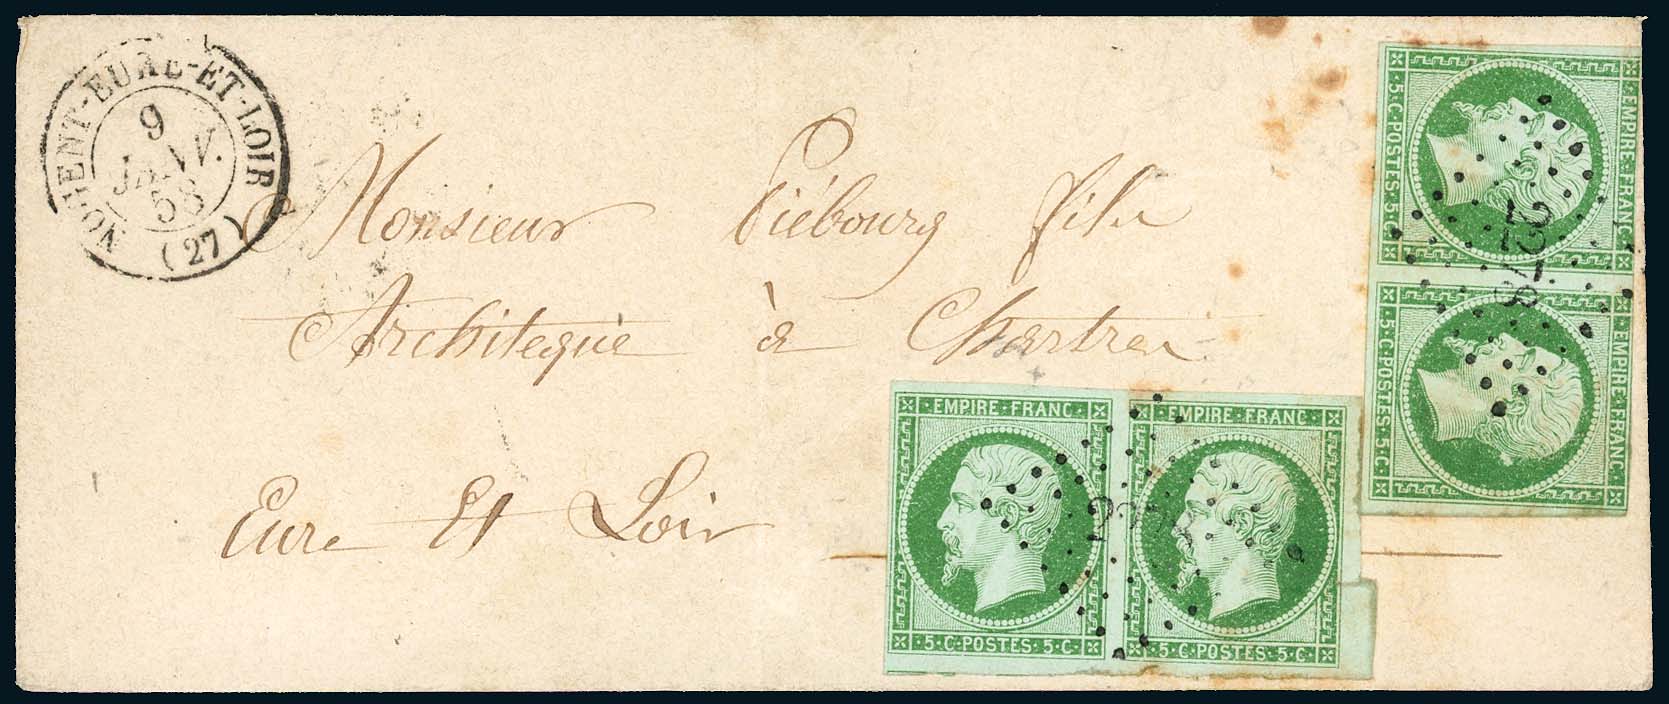 NOGENT-EURE-ET-LOIR
9
JANV.
58
(27)
Monsieur Piébourg fils
Architeque à Chartres
Eure Et Loir
EMPIRE·FRANC·
5·C·POSTES·5·C·
EMPIRE·FRANC·
5·C·POSTES·5·C·
2278
EMPIRE·FRANC·
5·C·POSTES·5·C·
EMPIRE·FRANC·
5·C·POSTES·5·C·